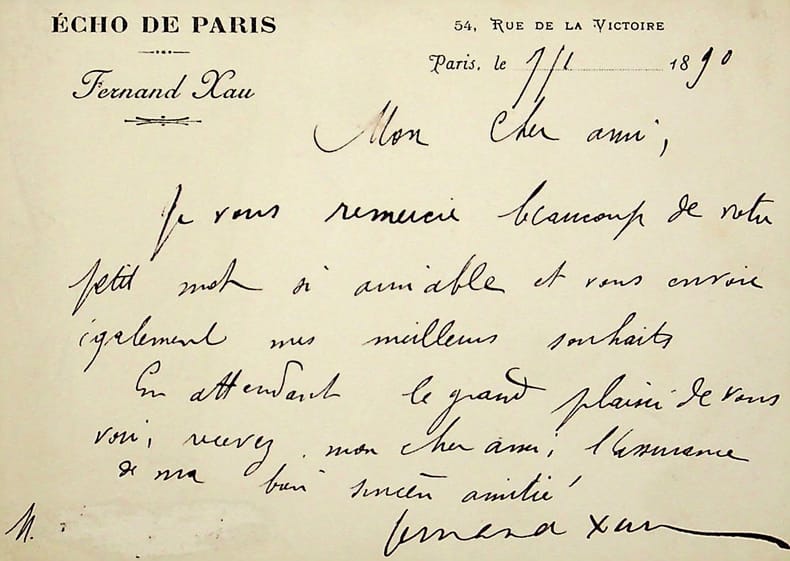 ÉCHO DE PARIS
Fernand Xau
54, RUE DE LA VICTOIRE
Paris, le 7/1 1890
Mon cher ami,
Je vous remercie beaucoup de votre
petit mot si aimable et vous envoie
également mes meilleurs souhaits
En attendant le grand plaisir de vous
voir, recevez, mon cher ami, l'assurance
de ma bien sincère amitié
Fernand Xau
M.